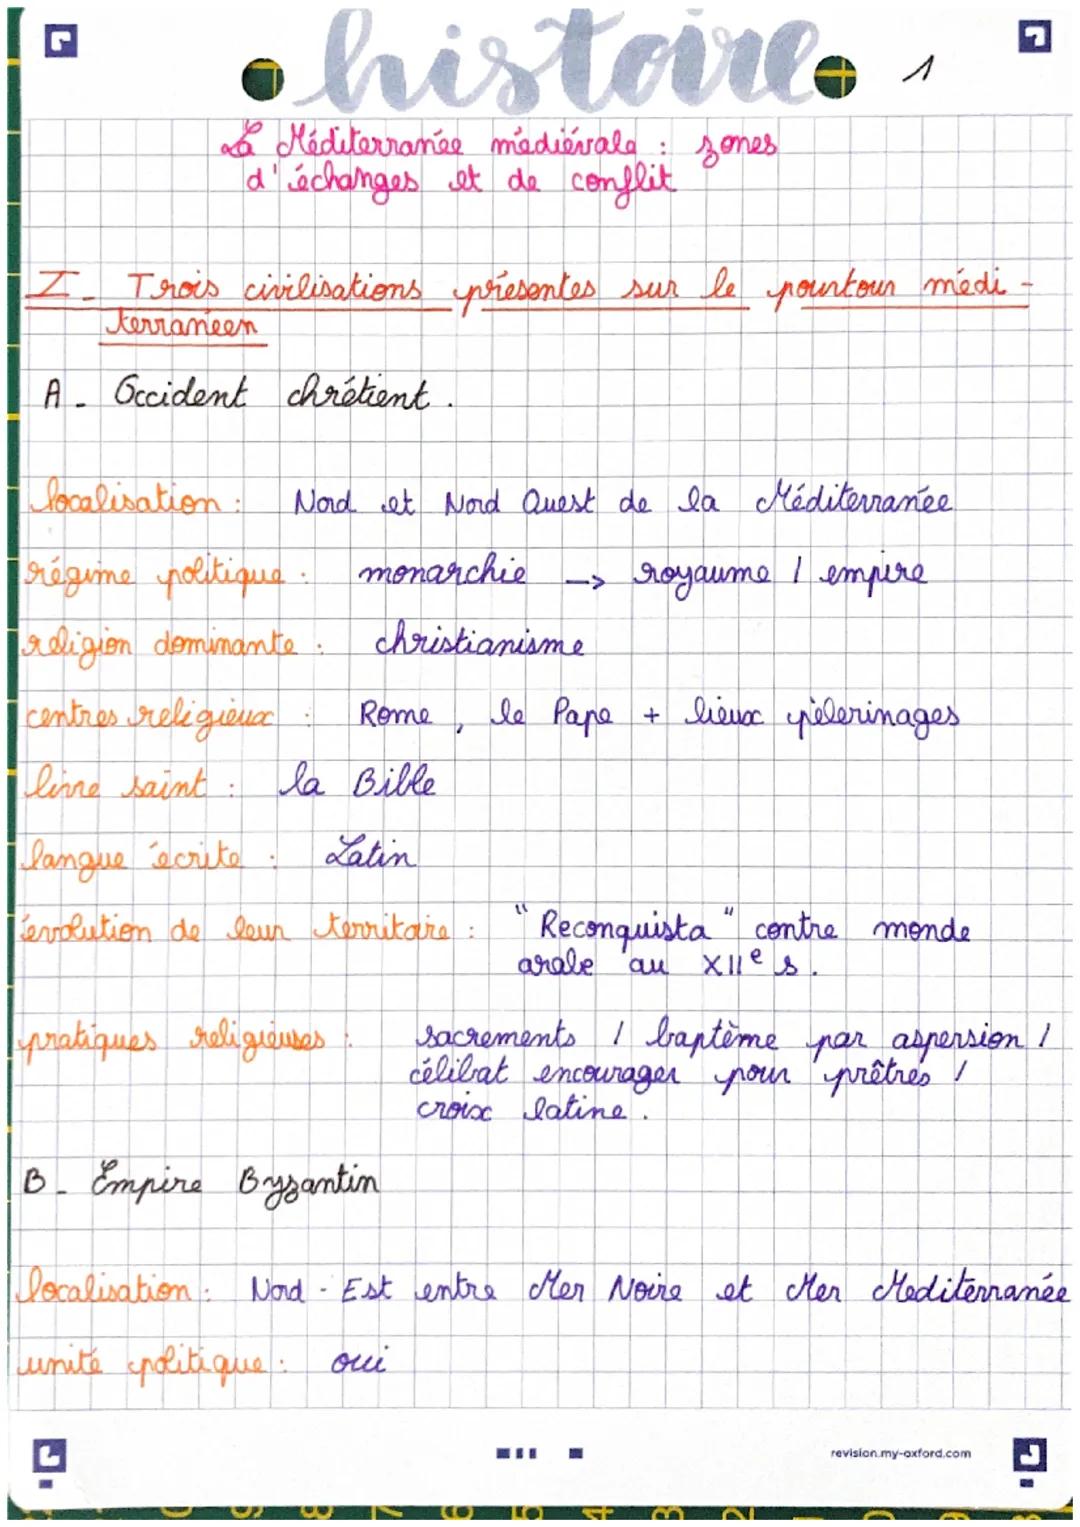 histoire 1
La Méditerranée médiévale : zones
d'échanges et de conflit
I - Trois civilisations présentes sur le pourtour médi-
terraneen
A - Occident chrétient.
localisation : Nord et Nord Ouest de la Méditerranée
régime politique : monarchie -> royaume / empire
religion dominante : christianisme
centres religieux : Rome, le Pape + lieux pèlerinages
livre saint : la Bible
langue écrite : Latin
évolution de leur territoire : "Reconquista" contre monde
arabe au XIIe s.
pratiques religieuses : sacrements / baptème par aspersion /
célibat encourager pour prêtres /
croix latine.
B - Empire Byzantin
localisation : Nord - Est entre Mer Noire et Mer Mediterranée
unité politique : oui
revision.my-oxford.com